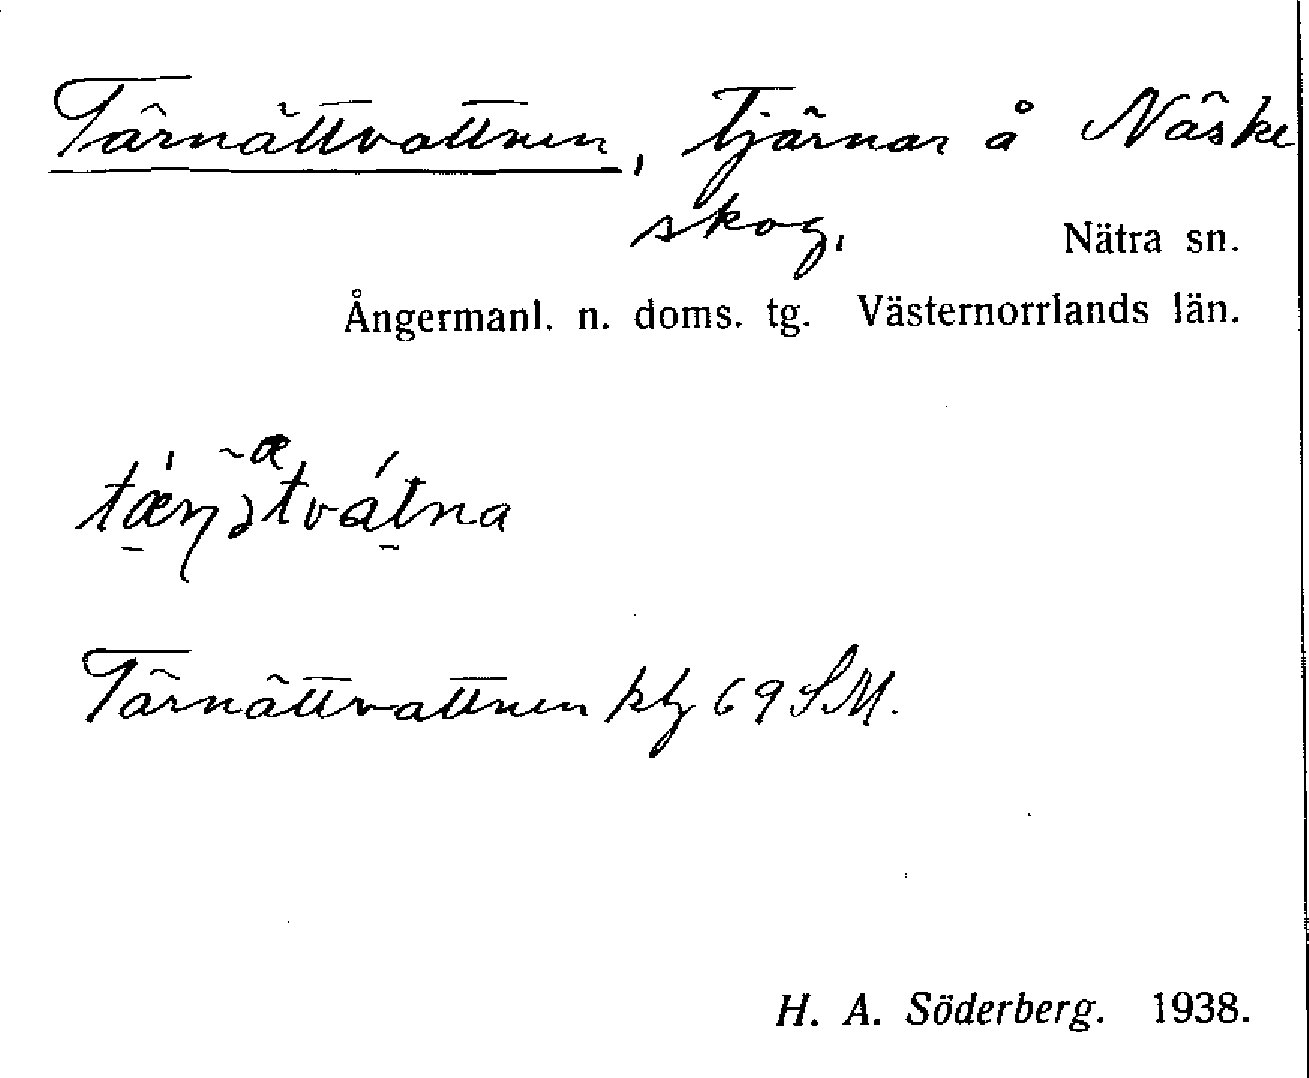 Tärnättvattnen, tjärnar å Näske
skog,
Nätra sn.
Ångermanl. n. doms. tg. Västernorrlands län.
Tärnättvattnen ktz 69 SM.
H. A. Söderberg. 1938.